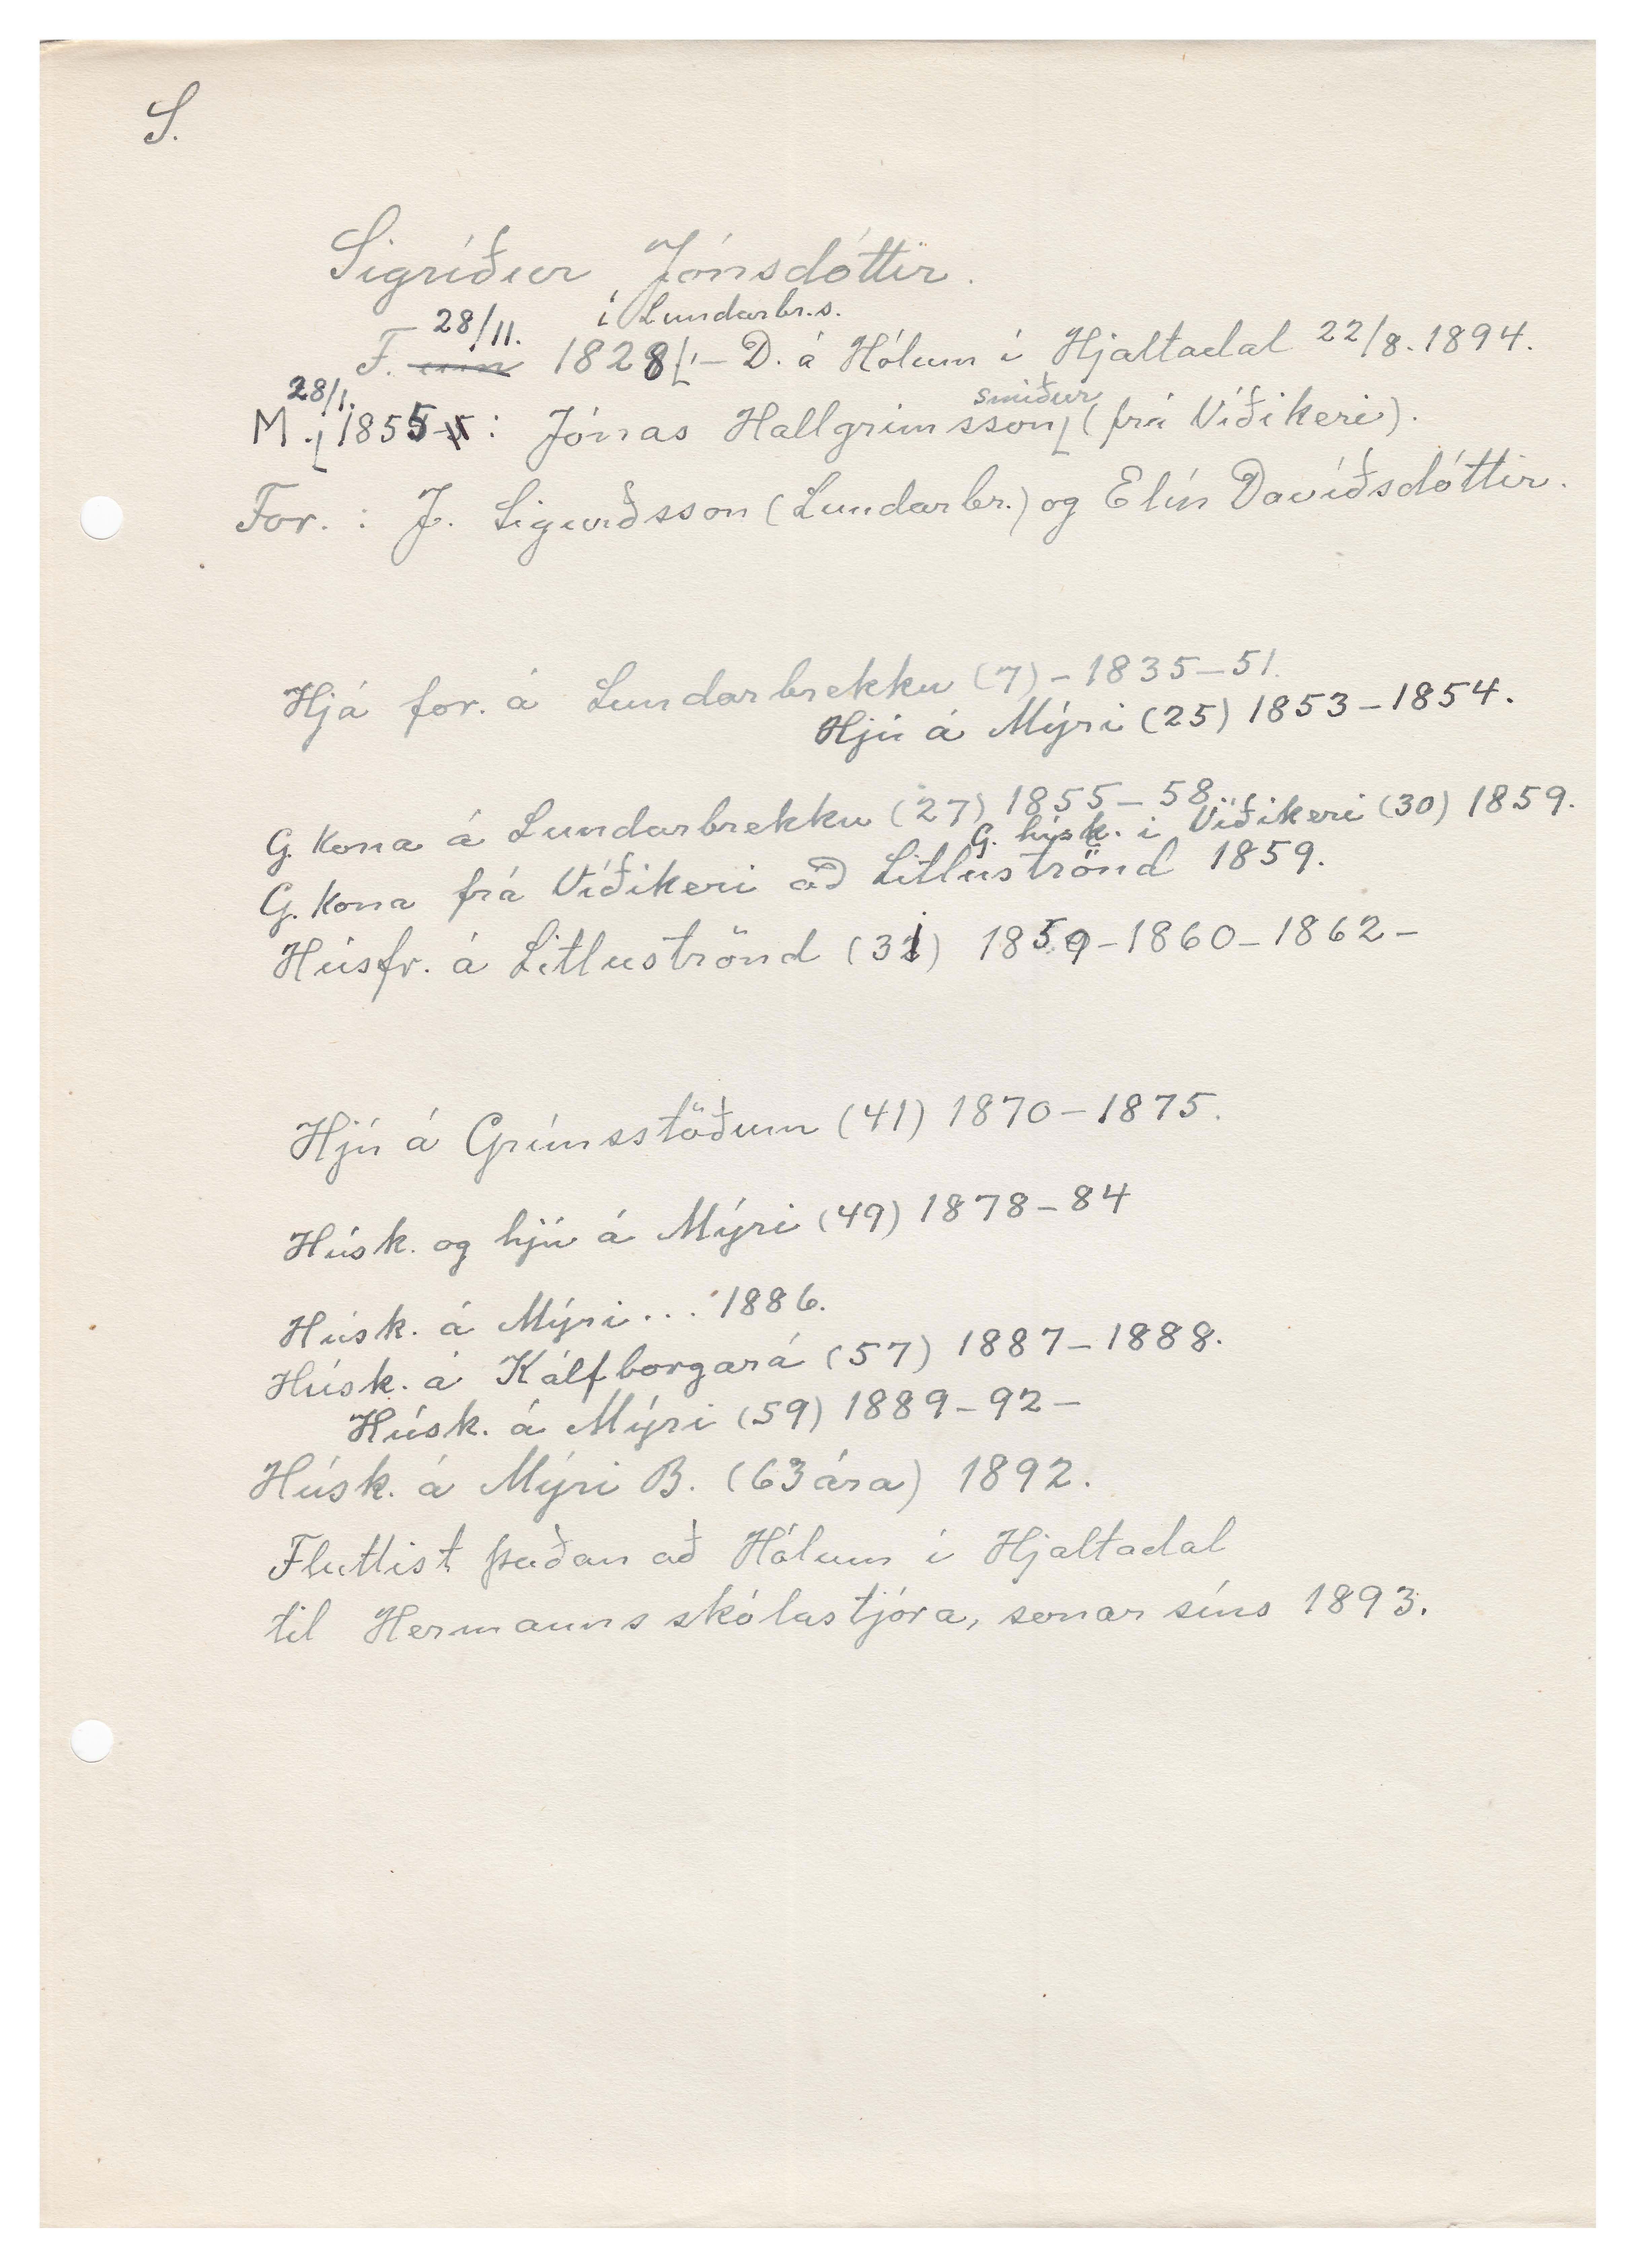 S.
Sigríður Jónsdóttir.
28/11. í Lundarbr.s.
F. um 1828 - D. á Hólum í Hjaltadal 22/8. 1894.
28/1. smiður
M. 1855 : Jónas Hallgrímsson (frá Víðikeri).
For. : J. Sigurðsson (Lundarbr.) og Elín Davíðsdóttir.
Hjá for. á Lundarbrekku (7) - 1835-51.
Hjú á Mýri (25) 1853-1854.
G. kona á Lundarbrekku (27) 1855-58.
G. húsk. í Víðikeri (30) 1859.
G. kona frá Víðikeri að Litluströnd 1859.
Húsfr. á Litluströnd (31) 1859-1860-1862-
Hjú á Grímsstöðum (41) 1870-1875.
Húsk. og hjú á Mýri (49) 1878-84
Húsk. á Mýri... 1886.
Húsk. á Kálfborgará (57) 1887-1888.
Húsk. á Mýri (59) 1889-92-
Húsk. á Mýri B. (63 ára) 1892.
Fluttist þaðan að Hólum í Hjaltadal
til Hermanns skólastjóra, sonar síns 1893.